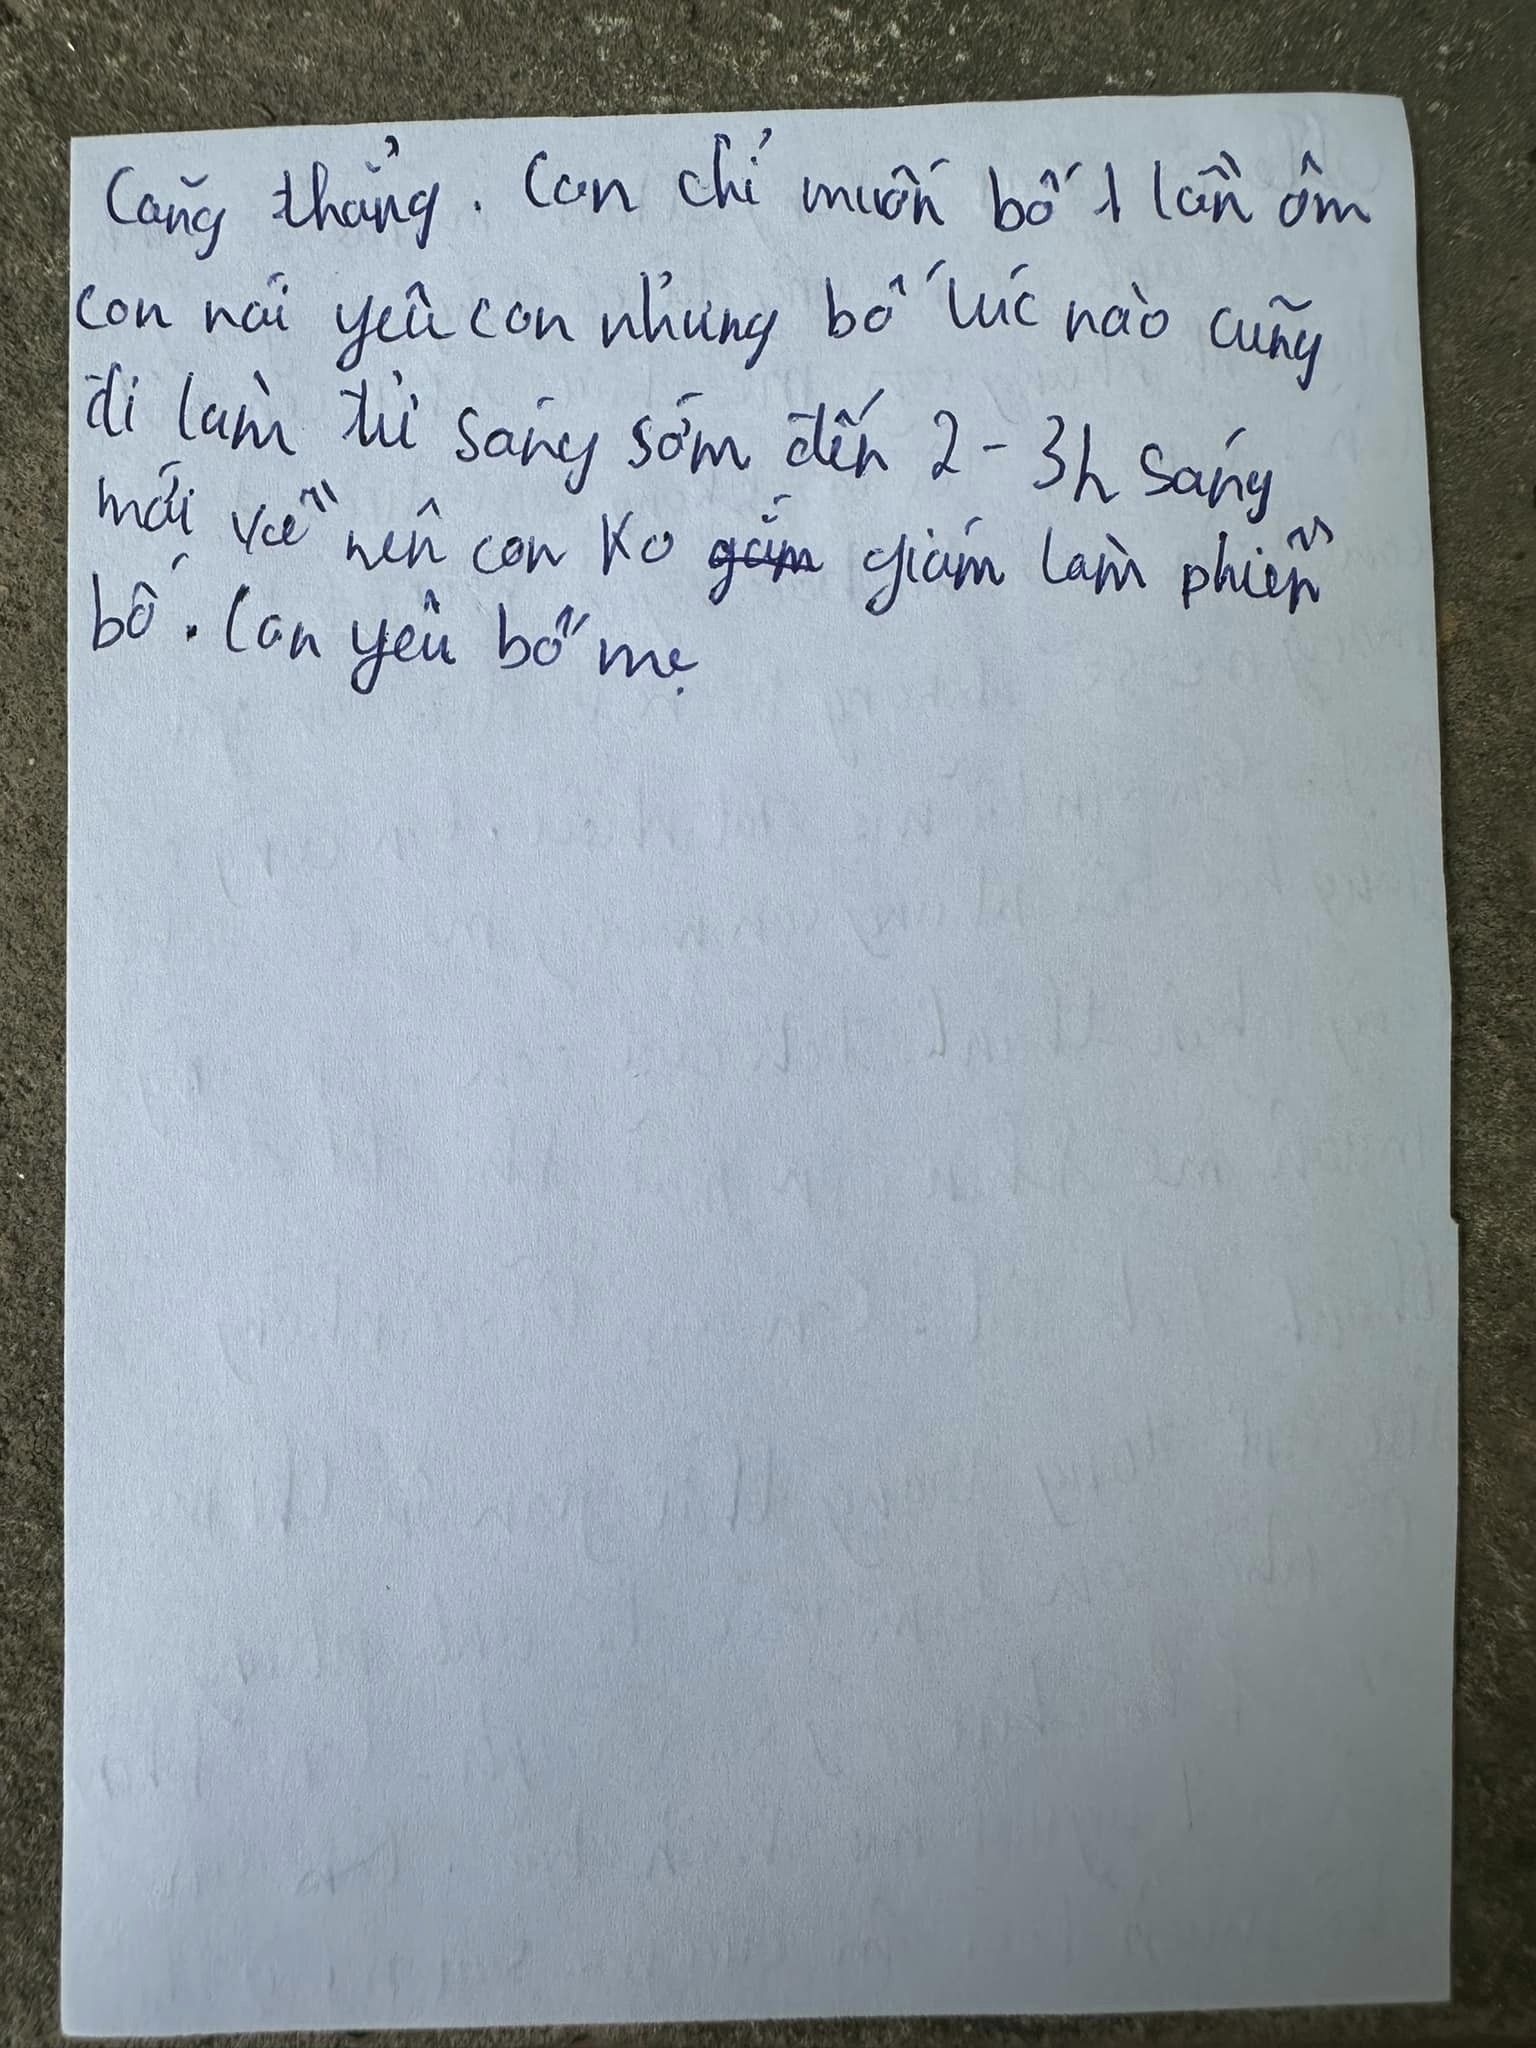 Căng thẳng. Con chỉ muốn bố 1 lần ôm
con nói yêu con nhưng bố lúc nào cũng
đi làm từ sáng sớm đến 2 - 3h sáng
mới về nên con ko giám làm phiền
bố. Con yêu bố mẹ